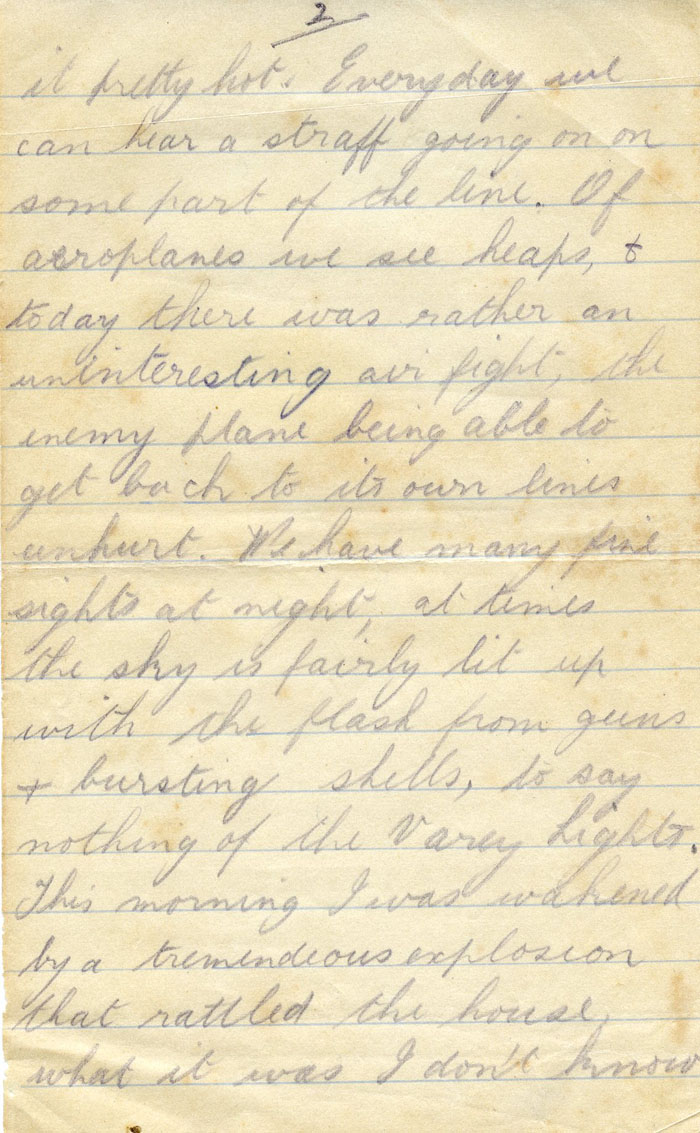 2
it pretty hot. Everyday we
can hear a straff going on on
some part of the line. Of
aeroplanes we see heaps, &
today there was rather an
uninteresting air fight, the
enemy plane being able to
get back to its own lines
unhurt. We have many fine
sights at night, at times
the sky is fairly lit up
with the flash from guns
& bursting shells, to say
nothing of the Varey Lights.
This morning I was wakened
by a tremendeous explosion
that rattled the house,
what it was I don't know